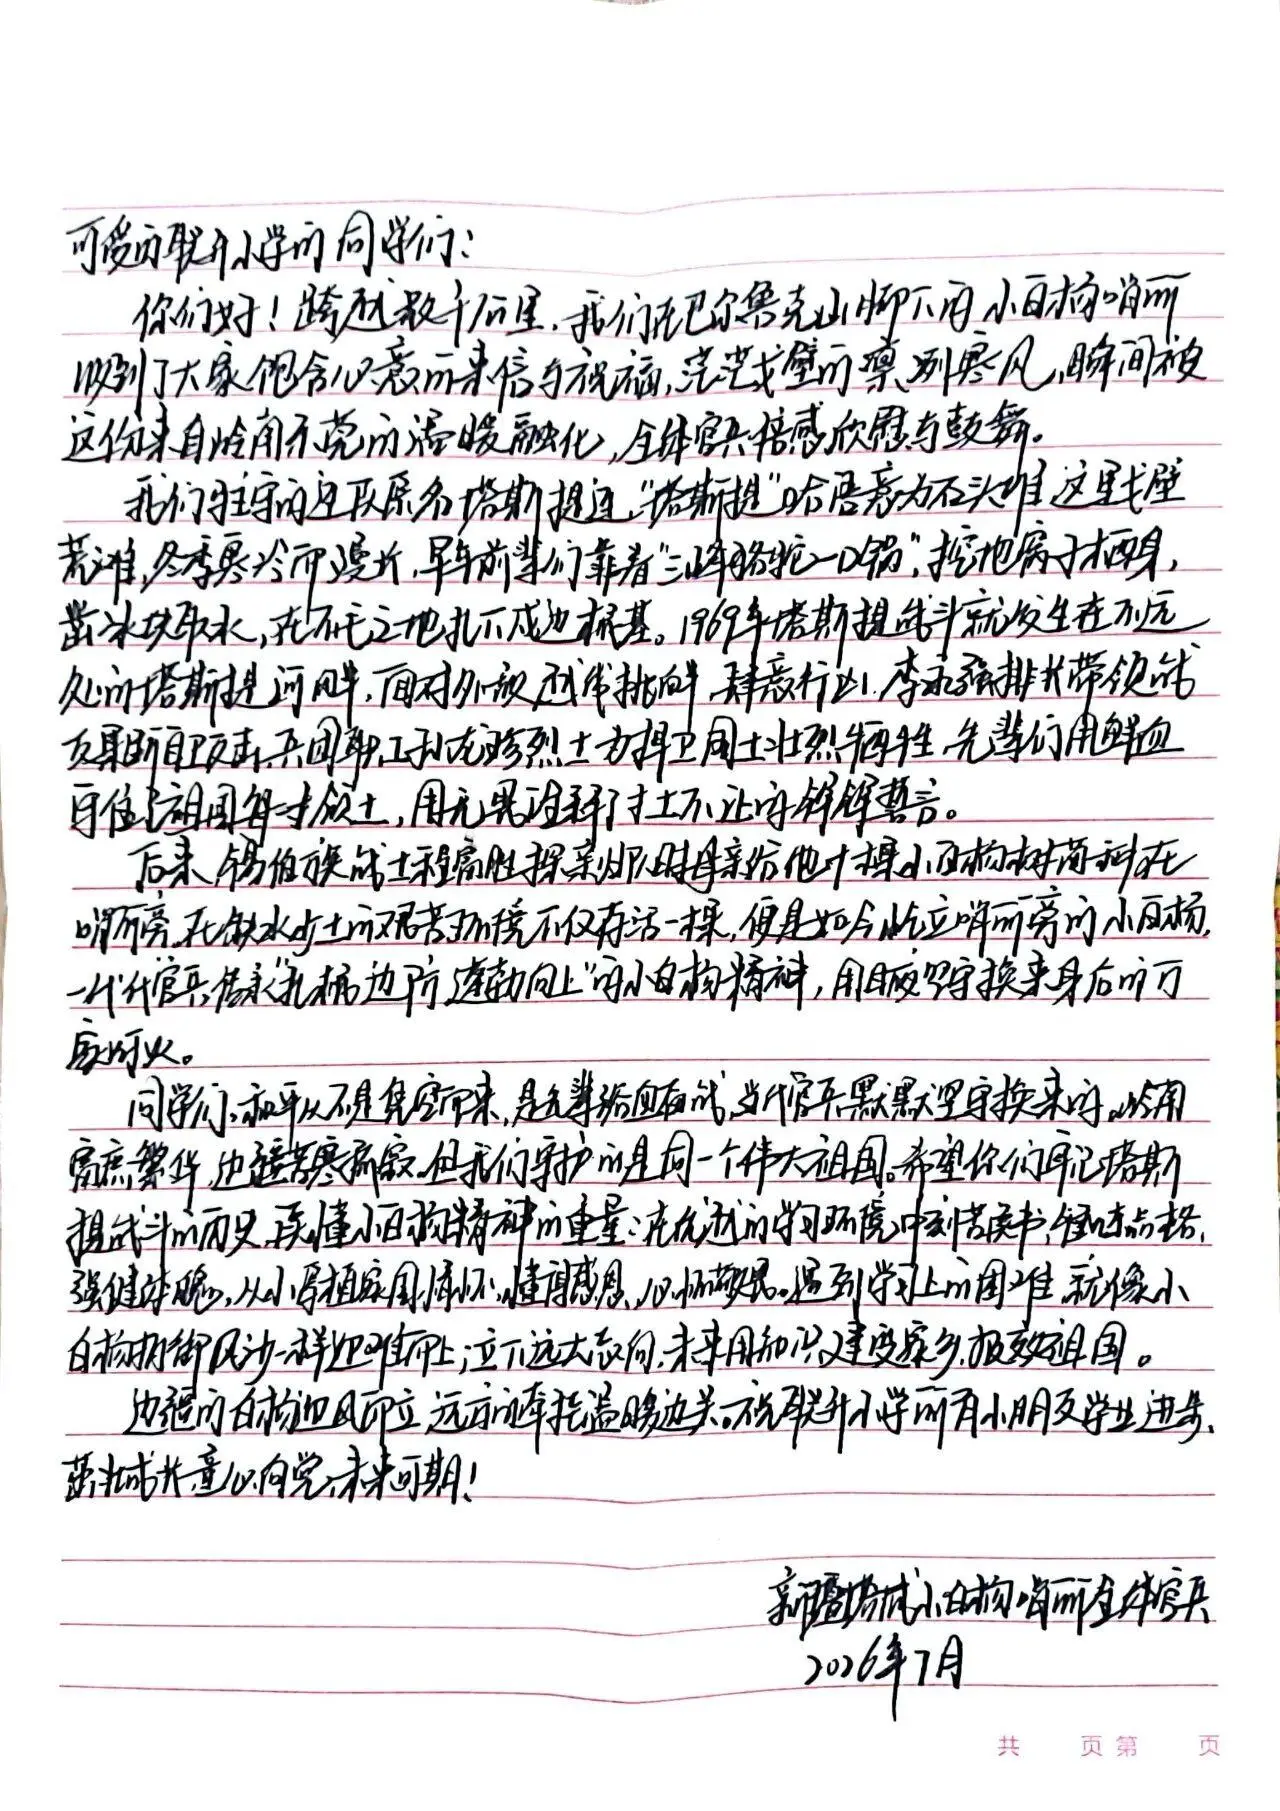 可爱的联升小学的同学们：
你们好！跨越数千公里，我们在巴尔鲁克山脚下的小白杨哨所
收到了大家饱含心意的来信与祝福，茫茫戈壁的凛冽寒风，瞬间被
这份来自岭南东莞的温暖融化，全体官兵倍感欣慰与鼓舞。
我们驻守的连队原名塔斯提连，“塔斯提”哈语意为石头滩 这里戈壁
荒滩，冬季寒冷而漫长，早年前辈们靠着“三峰骆驼一口锅”，挖地窝子栖身，
凿冰块取水，在不毛之地扎下戍边根基。1969年塔斯提战斗就发生在不远
处的塔斯提河畔，面对外敌越线挑衅，肆意行凶，李永强排长带领战
友果断自卫反击，兵团职工孙龙珍烈士为捍卫国土壮烈牺牲，先辈们用鲜血
守住了祖国每寸领土，用无畏诠释了寸土不让的铮铮誓言。
后来，锡伯族战士程富胜探亲归队时母亲给他十棵小白杨树苗种在
哨所旁，在缺水少土的艰苦环境下仅存活一棵，便是如今屹立哨所旁的小白杨，
一代代官兵传承“扎根边防，蓬勃向上”的小白杨精神，用日夜坚守换来身后的万
家灯火。
同学们，和平从不是凭空而来，是先辈浴血奋战，当代官兵默默坚守换来的，岭南
富庶繁华，边疆苦寒荒寂，但我们守护的是同一个伟大祖国。希望你们牢记塔斯
提战斗的历史，读懂小白杨精神的重量；在优越的学习环境中刻苦读书，锤炼品格，
强健体魄，从小厚植家国情怀，懂得感恩、心怀敬畏。遇到学习上的困难，就像小
白杨抵御风沙一样迎难而上；立下远大志向，未来用知识建设家乡，报效祖国。
边疆的白杨迎风而立，远方的牵挂温暖边关。祝联升小学所有小朋友学业进步，
茁壮成长，童心向党，未来可期！
新疆塔城小白杨哨所全体官兵
2026年7月
共 页 第 页